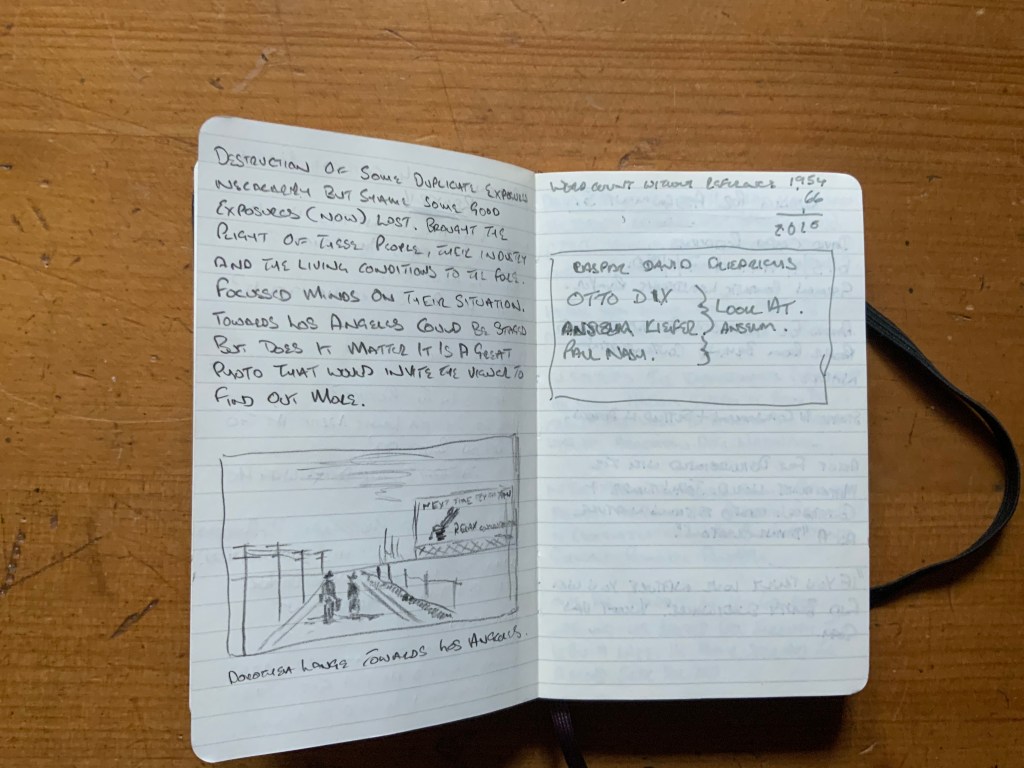 DESTRUCTION OF SOME DUPLICATE EXPOSURES
BUT SHAME SOME GOOD
EXPOSURES (NOW) LOST. BROUGHT THE
PLIGHT OF THESE PEOPLE, THEIR INDUSTRY
AND THE LIVING CONDITIONS TO THE FORE.
FOCUSSED MINDS ON THEIR SITUATION.
TOWARDS LOS ANGELES COULD BE STAGED
BUT DOES IT MATTER IT IS A GREAT
PHOTO THAT WOULD INVITE THE VIEWER TO
FIND OUT MORE.
NEXT TIME TRY THE TRAIN
RELAX
DOROTHEA LANGE TOWARDS LOS ANGELES.
WORD COUNT WITHOUT REFERENCE 1954
66
2020
CASPAR DAVID
OTTO DIX
KIEFER
PAUL NASH.
LOOK AT.
ANSELM.